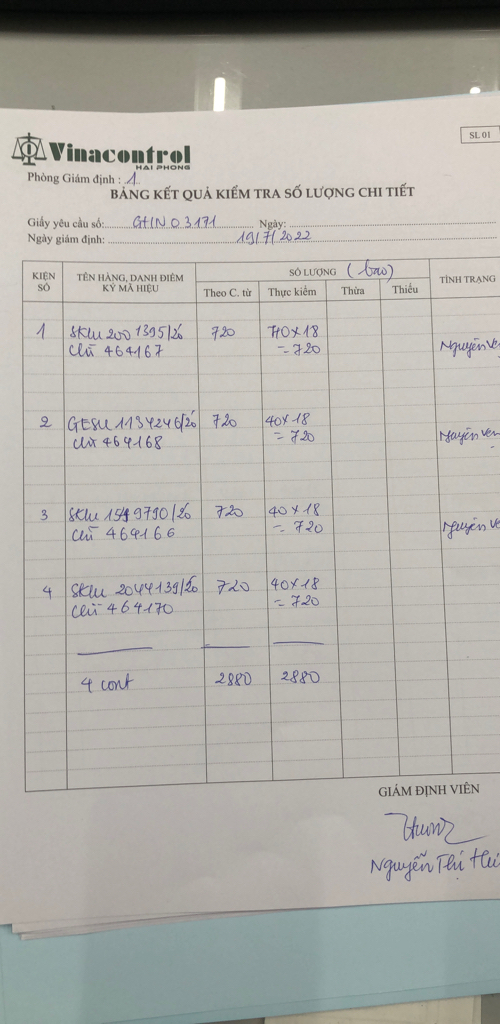 SL 01
Vinacontrol
HAI PHONG
Phòng Giám định : 1
BẢNG KẾT QUẢ KIỂM TRA SỐ LƯỢNG CHI TIẾT
Giấy yêu cầu số: GHN 03171 Ngày:
Ngày giám định: 19/7/2022
KIỆN SỐ TÊN HÀNG, DANH ĐIỂM KÝ MÃ HIỆU SỐ LƯỢNG (bao) TÌNH TRẠNG
Theo C. từ Thực kiểm Thừa Thiếu
1 SKLU 200 1395/20 720 40x18
chì 464167 = 720 Nguyên
2 GESU 1134246/20 720 40x18
chì 464168 = 720 Nguyên
3 SKLU 1549790/20 720 40x18
chì 464166 = 720 Nguyên
4 SKLU 2044139/20 720 40x18
chì 464170 = 720
4 cont 2880 2880
GIÁM ĐỊNH VIÊN
Nguyễn Thị